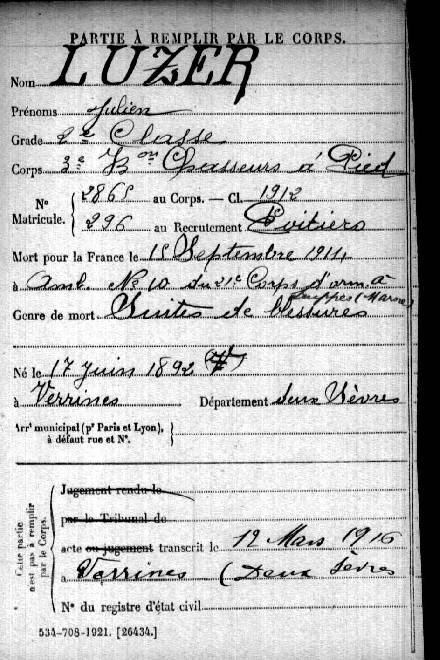 PARTIE À REMPLIR PAR LE CORPS.
Nom LUZER
Prénoms Julien
Grade 2e Classe
Corps 3e Bon Chasseurs à Pied
N° Matricule. { 2865 au Corps. — Cl. 1912
296 au Recrutement Poitiers
Mort pour la France le 15 Septembre 1914
à Amb. No 10 du 21e Corps d'armée à
Suippes (Marne)
Genre de mort Suites de blessures
Né le 17 juin 1892
à Verrines Département Deux Sèvres
Arrt municipal (pr Paris et Lyon),
à défaut rue et N°.
Cette partie
n'est pas à remplir
par le Corps.
Jugement rendu le
par le Tribunal de
acte ou jugement transcrit le 12 Mars 1916
à Verrines (Deux Sèvres
N° du registre d'état civil
534-708-1921. [26434.]